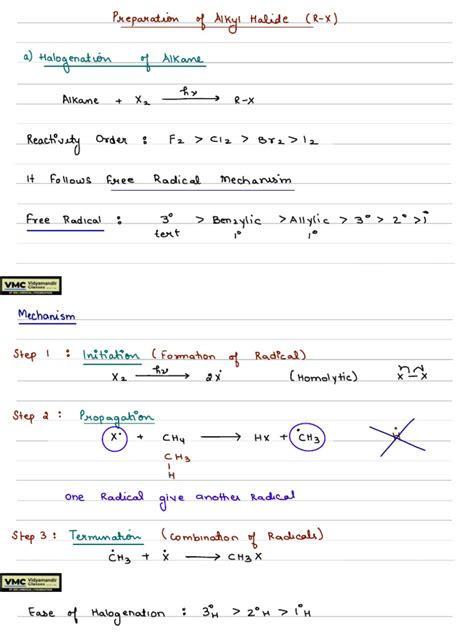 Preparation of Alkyl Halide (R-X)
a) Halogenation of Alkane
Alkane + X₂ —hν→ R-X
Reactivity Order : F₂ > Cl₂ > Br₂ > I₂
It Follows Free Radical Mechanism
Free Radical : 3° > Benzylic > Allylic > 3° > 2° > 1°
tert 1° 1°
VMC Vidyamandir Classes
Mechanism
Step 1 : Initiation (Formation of Radical)
X₂ —hν→ 2Ẋ (Homolytic) X–X
Step 2 : Propagation
X• + CH₄ ⟶ HX + ĊH₃ Ḣ
CH₃
|
H
One Radical give another Radical
Step 3 : Termination (Combination of Radicals)
ĊH₃ + Ẋ ⟶ CH₃X
VMC Vidyamandir Classes
Ease of Halogenation : 3°H > 2°H > 1°H